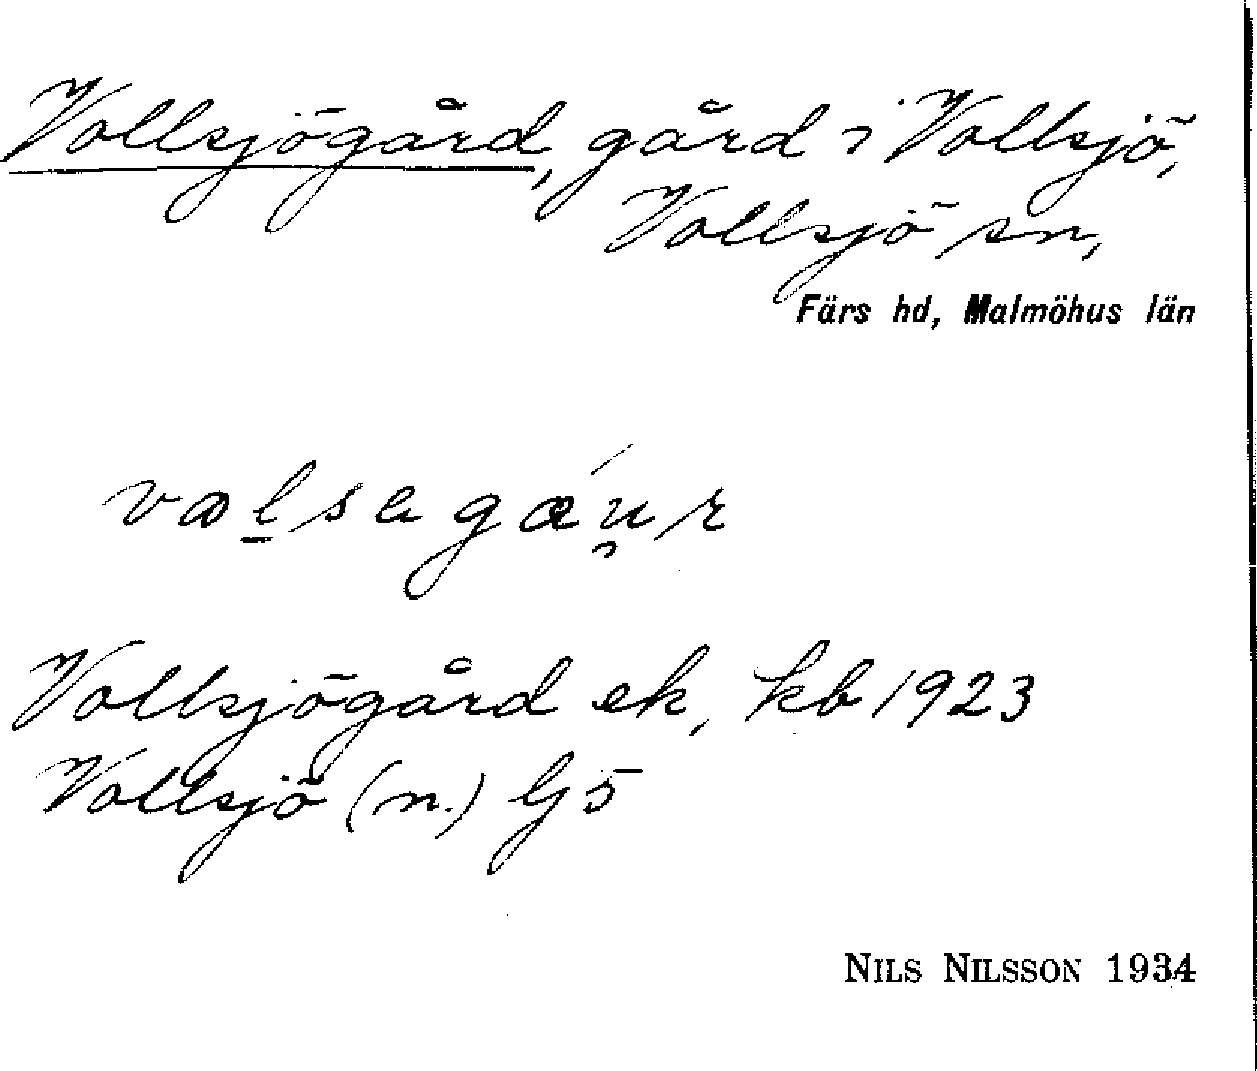 Vollsjögård, gård i Vollsjö,
Vollsjö sn,
Färs hd, Malmöhus län
Vollsjögård ek, kb 1923
Vollsjö (n.) G5
NILS NILSSON 1934